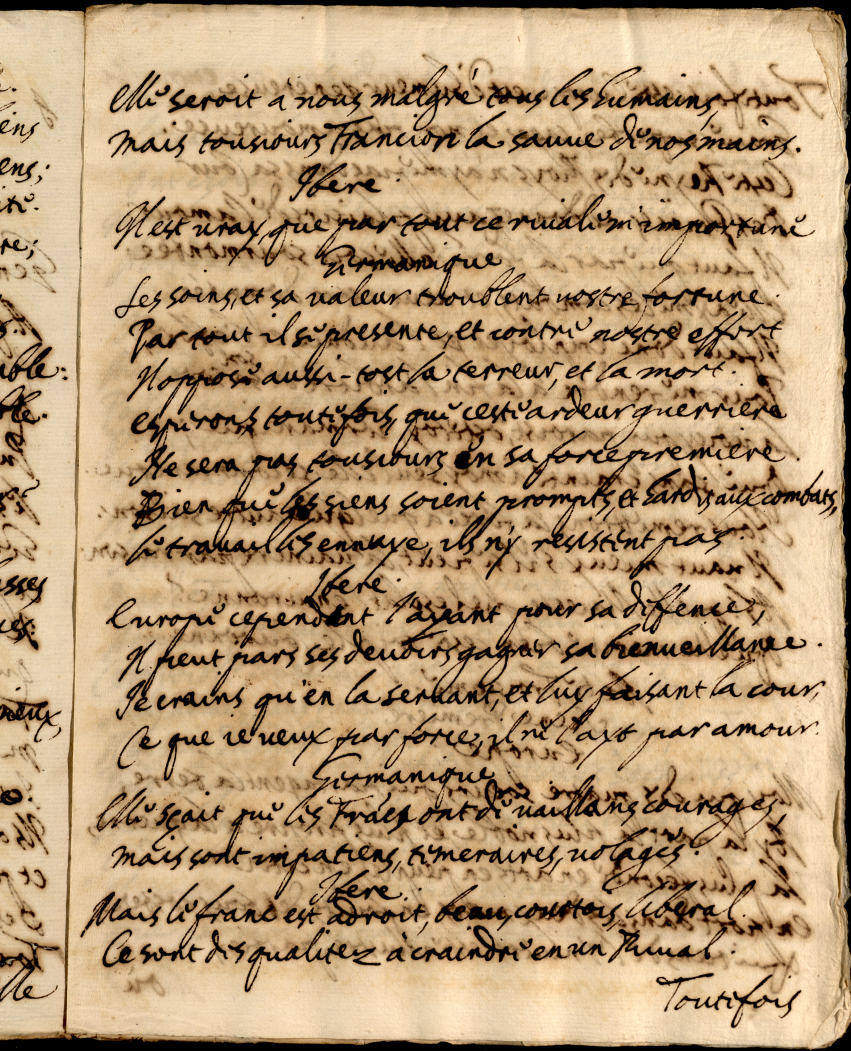 Elle seroit à nous malgré tous les humains,
Mais tousiours Francion la sauue de nos mains.
Ibere.
Il est uray, que par tout ce riual m'importune
Germanique
Ses soins, et sa ualeur troublent nostre fortune.
Par tout il se presente, et contre nostre effort
Il oppose aussi-tost la terreur, et la mort.
esperons toutefois, que ceste ardeur guerriere
Ne sera pas tousiours en sa force premiere.
Bien que les siens soient prompts, et hardis aux combats,
le trauail les ennuye, ils n'y resistent pas.
Ibere.
Europe cependant l'ayant pour sa deffence,
Il peut pars ses deuoirs gagner sa bienueillance.
Je crains qu'en la seruant, et luy faisant la cour,
Ce que ie ueux par force, il ne l'ayt par amour.
Germanique
Elle sçait que les Fräcs ont de uaillans courages,
mais sont impatiens, temeraires, uolages.
Ibere.
Mais le franc est adroit, beau, courtois, liberal.
Ce sont des qualitez à craindre en un Riual.
Toutefois